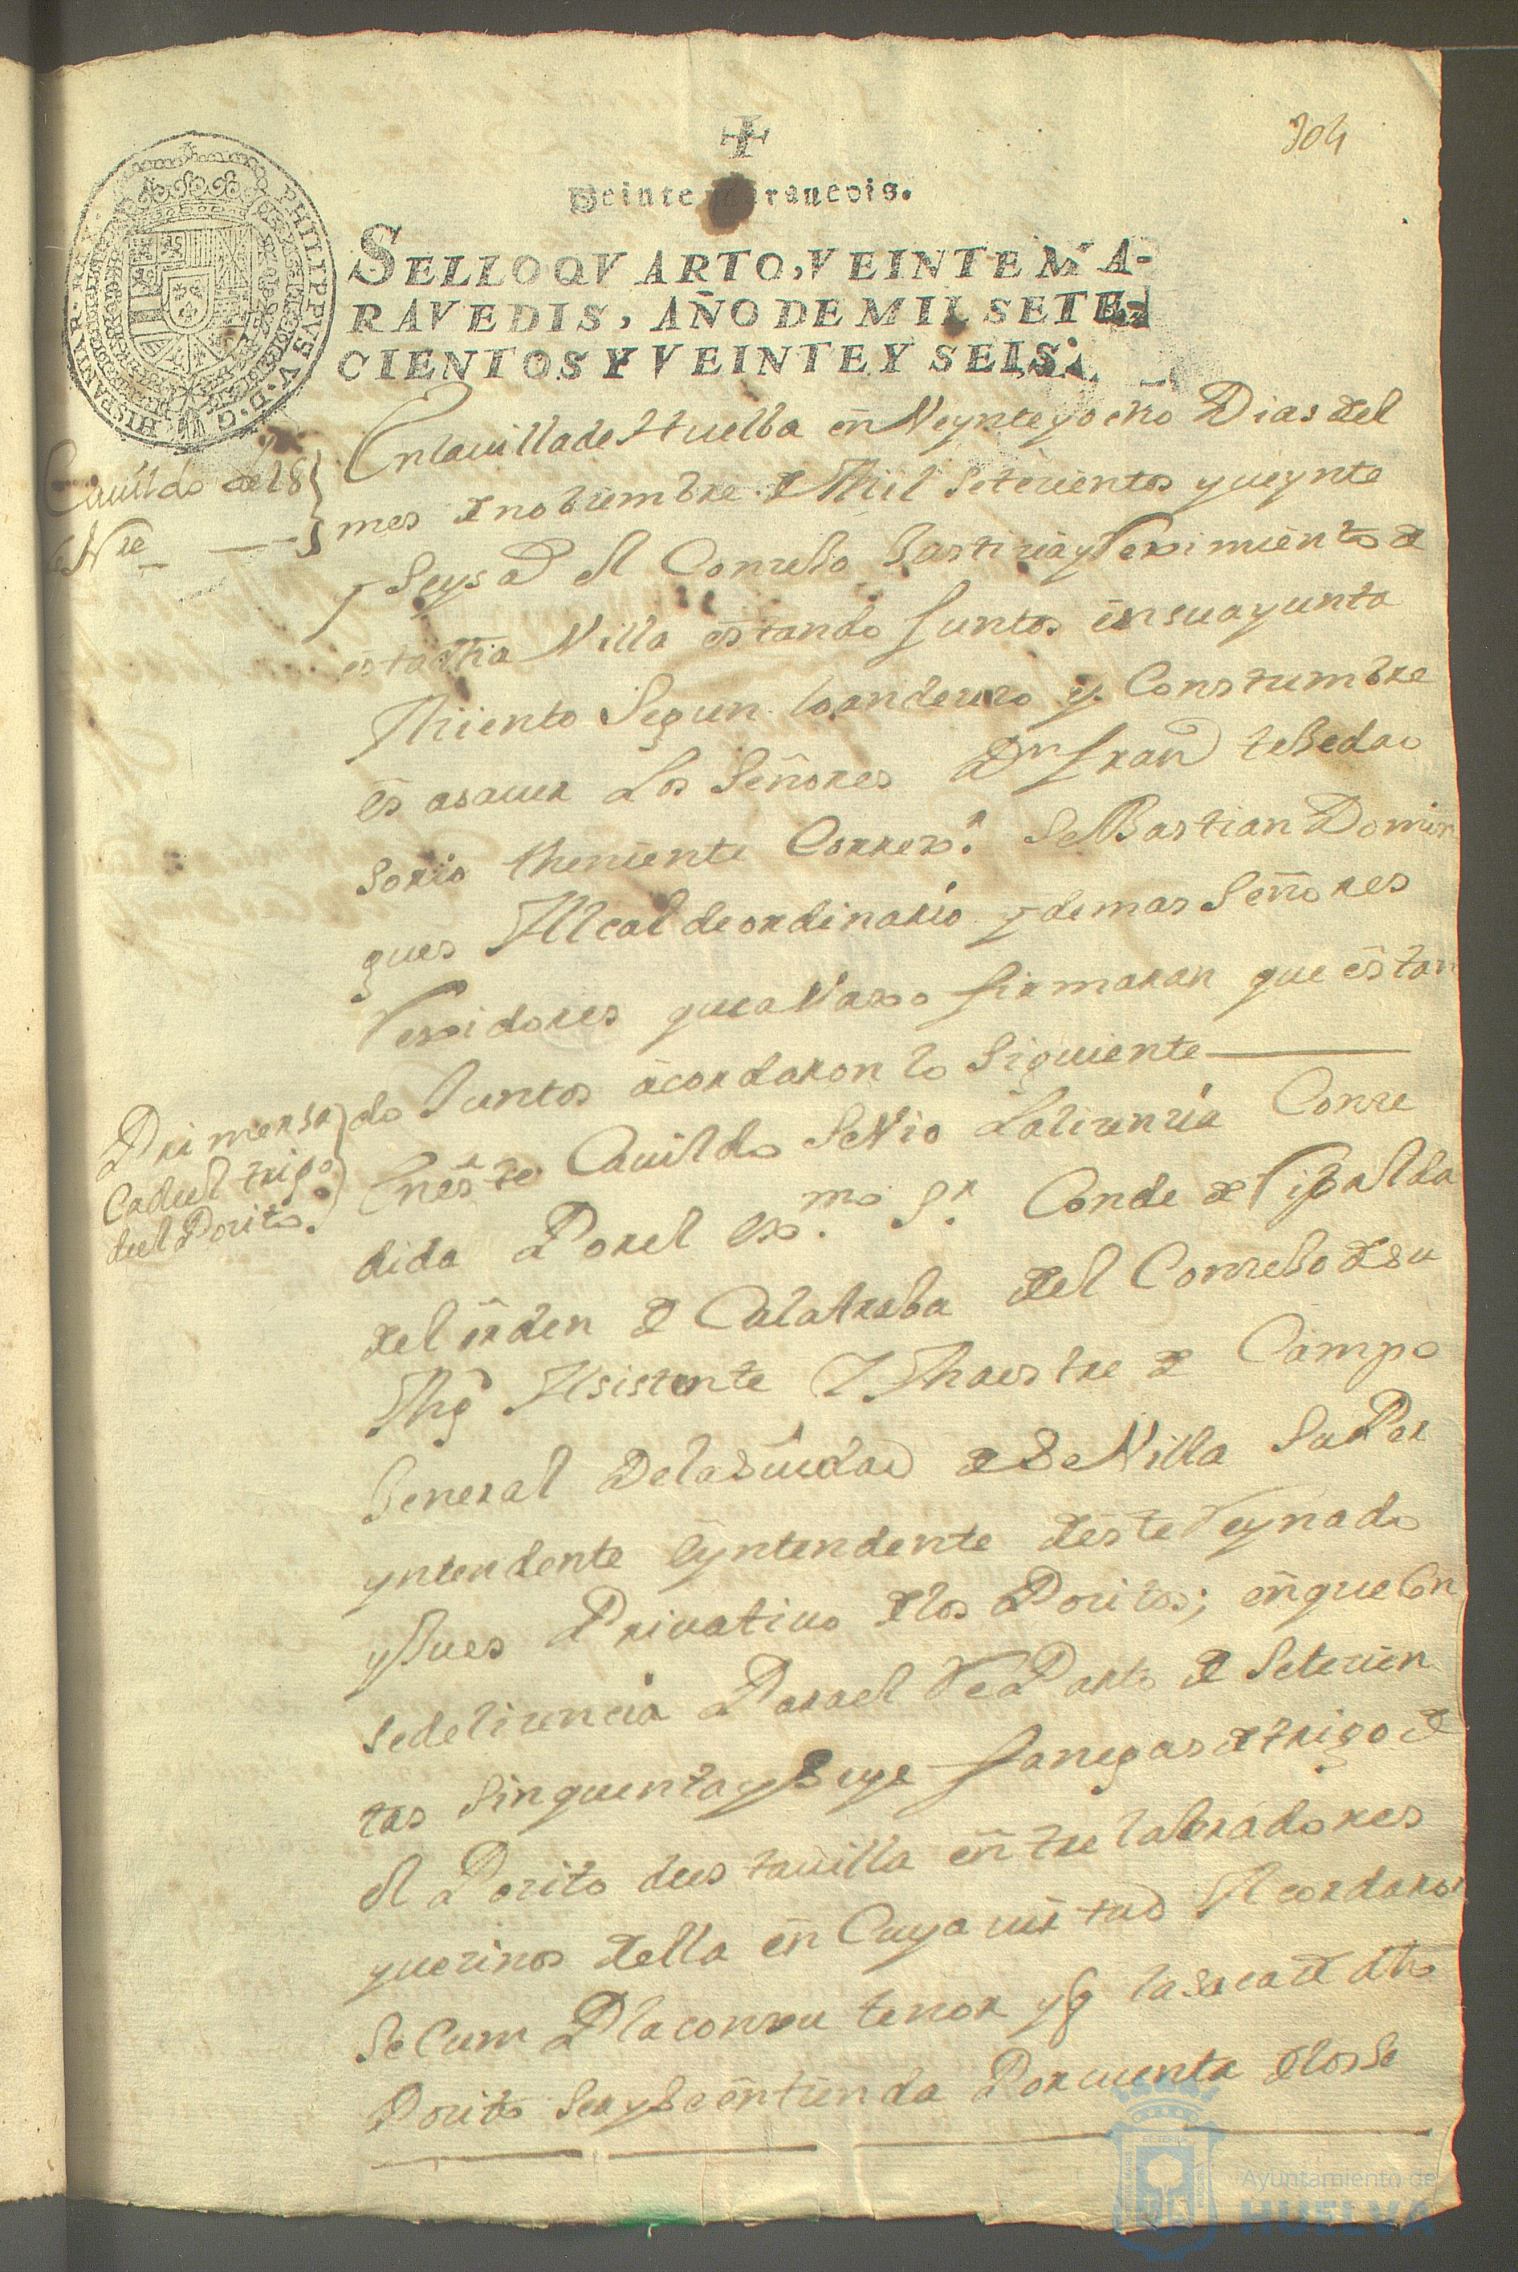 304
Veinte maravedis.
SELLO QVARTO, VEINTE MA-
RAVEDIS, AÑO DE MIL SETE-
CIENTOS Y VEINTE Y SEIS.
PHILIPPVS. V. D. G. HISPANIAR. REX.
Cauildo de 28
de Nre
En la uilla de Huelba en Veynte y ocho Dias del
mes de nobiembre de Mil Setecientos y ueynte
y Seys as el Consejo Justicia y Reximiento de
esta dha Villa estando Juntos en su ayunta
Miento Segun lo an de uzo y Constumbre
es asauer Los Señores Dn Fran tebedao
sorio theniente Correxr. SeBastian Domin
gues Alcalde ordinario y demas Señores
Rexidores que aVaxo firmaran que estan
do Juntos acordaron lo Siguiente
Primer sa
ca del trigo
del Posito.
En este Cauildo Se Vio La licencia Conce
dida Por el Exmo. Sr. Conde de Ripalda
del orden de Calatraba del Consejo de su
Mgd Asistente Y Maestre de Campo
General De la Siudad de SeVilla SuPer
yntendente e yntendente de este Reynado
y Jues Priuatiuo de los Positos; en que Con
sede licencia Para el RePartto de Setecien
tas Sinquenta y Seys fanegas de trigo de
el Posito de esta uilla entre labradores
y uecinos della en Cuya uirtud Acordaron
Se Cum Pla con su tenor y q la saca de dho
Posito sea y Se entienda Por cuenta de los Se
Ayuntamiento de
HUELVA